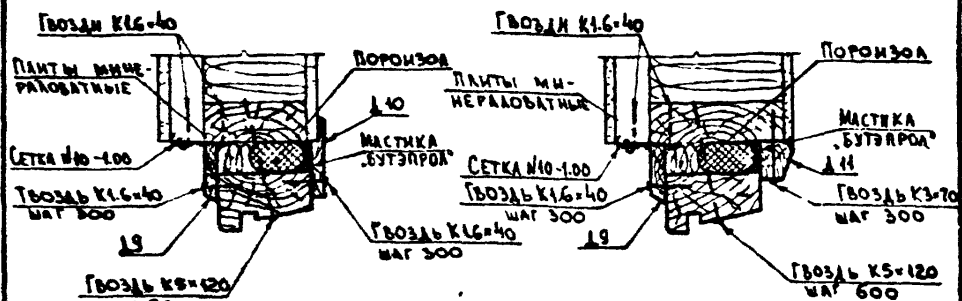 Гвозди К1.6×40
Плиты мине-
раловатные
Сетка №10-1.00
Гвоздь К1.6×40
шаг 300
Д9
Гвоздь К5×120
Пороизол
Д10
Мастика
„Бутэпрол"
Гвоздь К1.6×40
шаг 300
Гвозди К1.6×40
Плиты ми-
нераловатные
Сетка №10-1.00
Гвоздь К1.6×40
шаг 300
Д9
Пороизол
Мастика
„Бутэпрол"
Д11
Гвоздь К3×70
шаг 300
Гвоздь К5×120
шаг 600